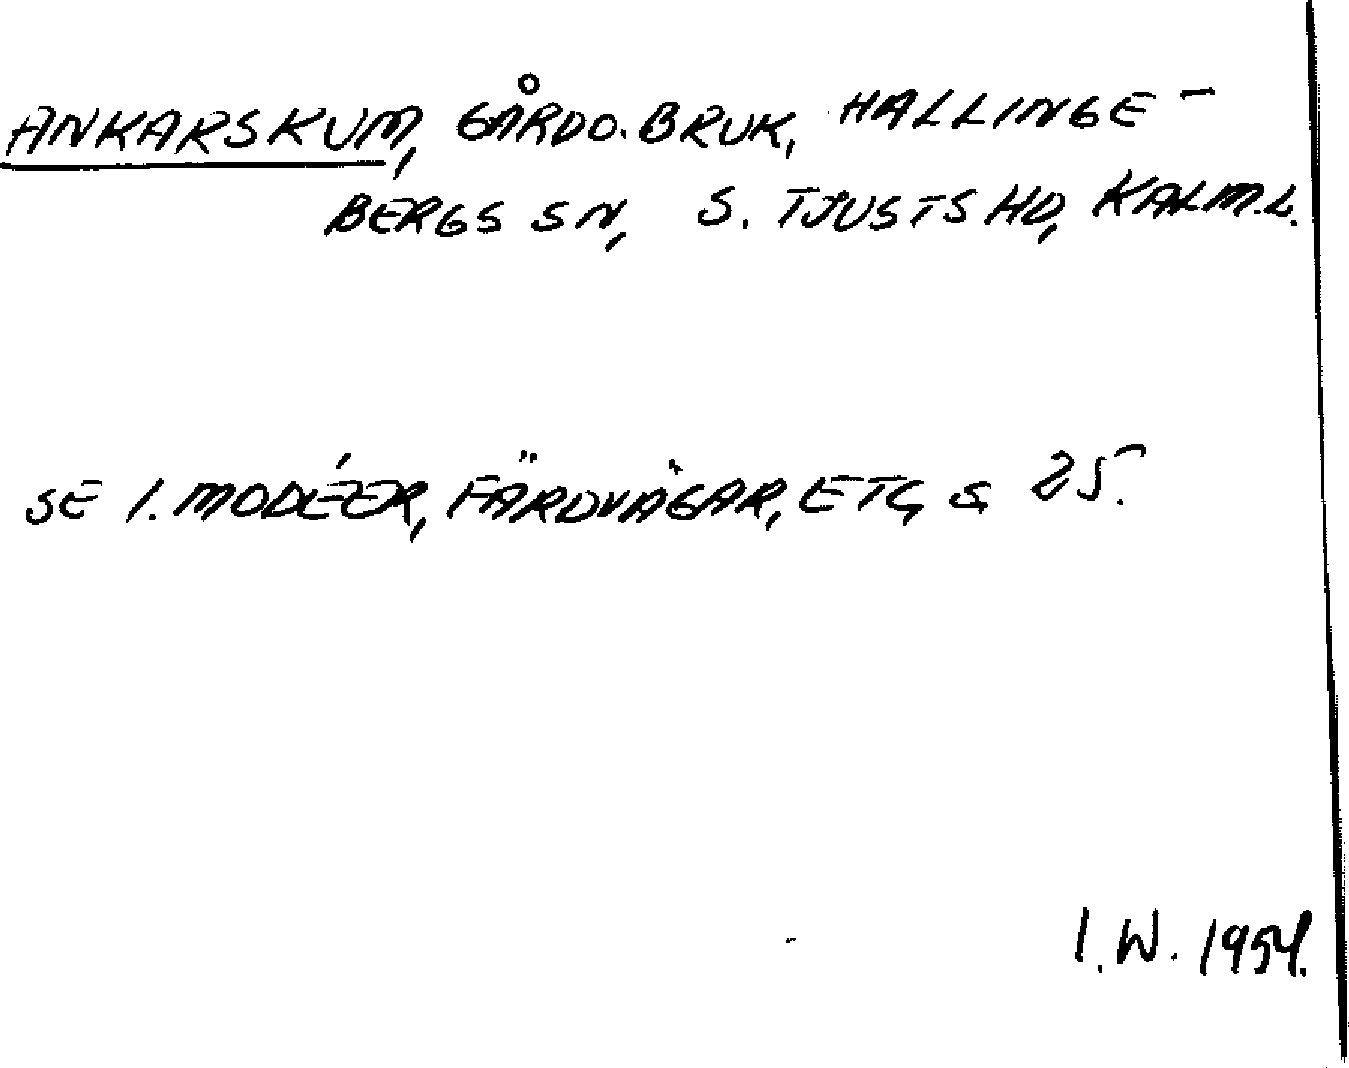 ANKARSKUM, GÅRD O. BRUK, HALLINGE-
BERGS SN, S. TJUSTS HD, KALM.L.
SE I. MODÉER, FÄRDVÄGAR, ETC, S 25.
I.W. 1954.